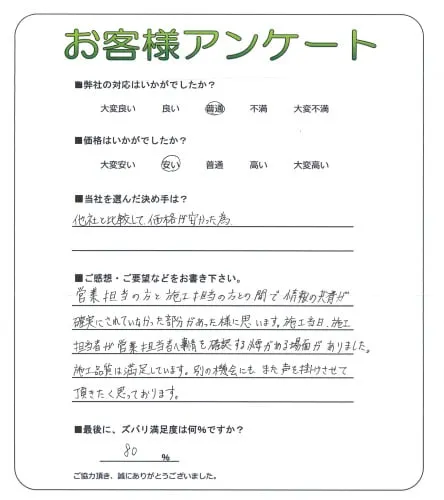 お客様アンケート
■弊社の対応はいかがでしたか？
大変良い 良い 普通 不満 大変不満
■価格はいかがでしたか？
大変安い 安い 普通 高い 大変高い
■当社を選んだ決め手は？
他社と比較して、価格が安かった為
■ご感想・ご要望などをお書き下さい。
営業担当の方と施工担当の方との間で情報の共有が
確実にされていなかった部分があった様に思います。施工当日、施工
担当者が営業担当者へ事情を確認する場面がありました。
施工品質は満足しています。別の機会にも、また声を掛けさせて
頂きたく思っております。
■最後に、ズバリ満足度は何%ですか？
80 %
ご協力頂き、誠にありがとうございました。